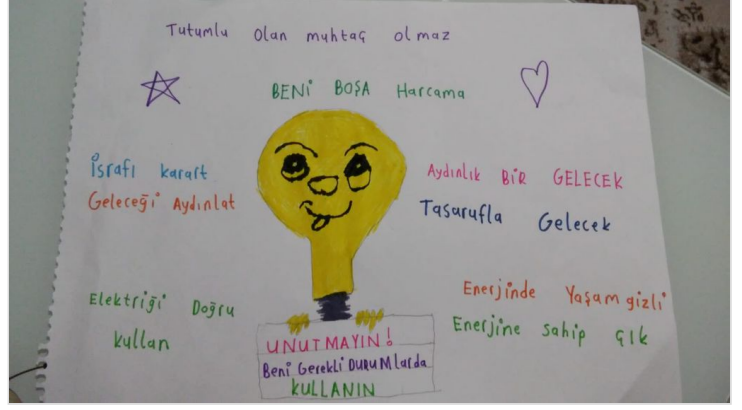 Tutumlu olan muhtaç olmaz
BENİ BOŞA Harcama
İsrafı karart
Geleceği Aydınlat
Aydınlık BİR GELECEK
Tasarufla Gelecek
Elektriği Doğru
kullan
Enerjinde Yaşam gizli
Enerjine sahip çık
UNUTMAYIN!
Beni Gerekli DURUMlarda
KULLANIN